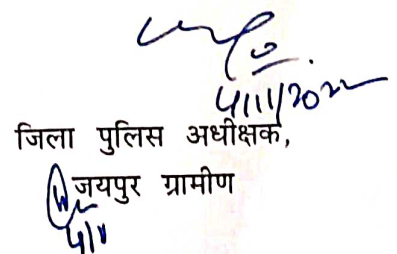 4/11/2022
जिला पुलिस अधीक्षक,
जयपुर ग्रामीण
4/11